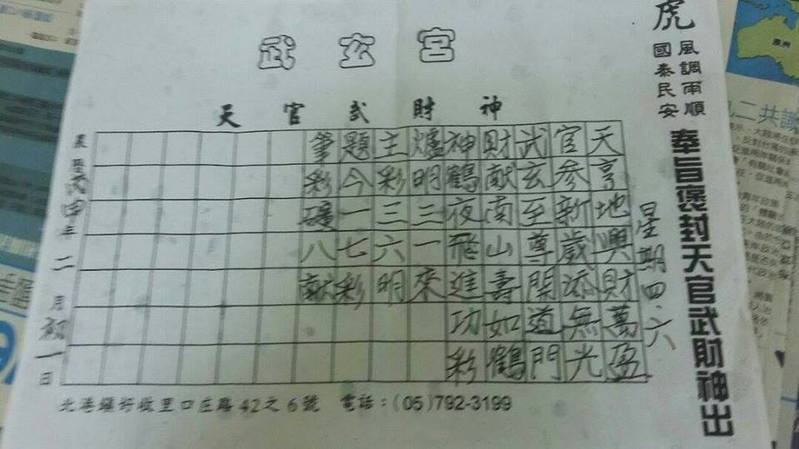 武玄宮
天官武財神
虎
風調雨順
國泰民安
奉旨褒封天官武財神出
星期四.六
天亨地興財萬盈
官參新歲添無光
武玄至尊開道門
財獻南山壽如鶴
神鶴夜飛進功彩
爐明三一來
主彩三六明
題今一七彩
筆彩碰八獻
年二月初一日
北港鎮好收里口庄路42之6號 電話：(05)792-3199
二共識